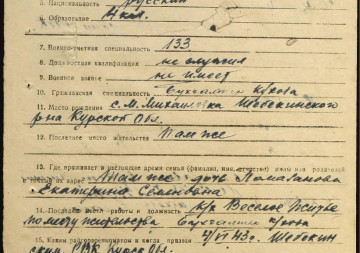 5. Национальность русский
6. Образование 4 кл.
7. Военно-учетная специальность 133
8. Должностная квалификация не служил
9. Военное звание не имеет
10. Гражданская специальность Бухгалтер к/хоза
11. Место рождения с. М. Михайловка Шебекинского
р-на Курской Обл.
12. Последнее место жительства Там же
13. Где проживает в настоящее время семья (фамилия, имя, отчество) или родителей
Там же - дочь
Екатерина Семеновна
14. Последнее место работы и должность к/з Веселое Житье
по месту жительства Бухгалтер
15. Каким райвоенкоматом и когда призван 43 г. Шебекин
ский РВК Курск Обл.